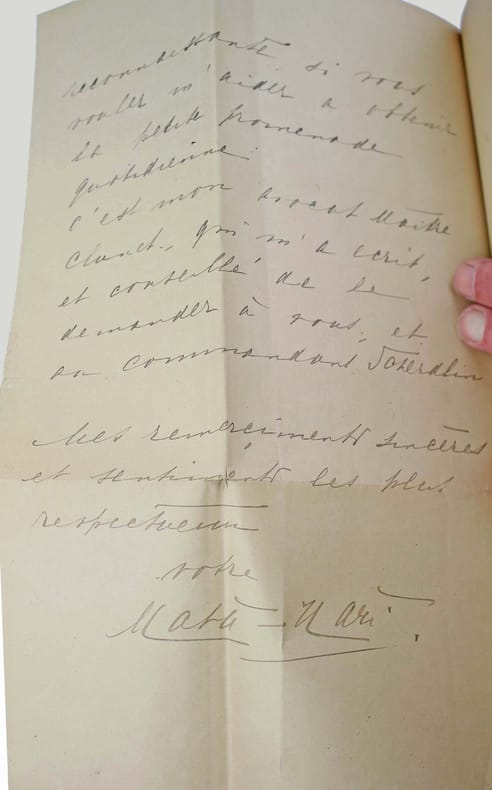 reconnaissante si vous
voulez m'aider a obtenir
la petite promenade
quotidienne.
c'est mon avocat Maître
Clunet, qui m'a écrit,
et conseillé de le
demander à vous, et
au commandant
Mes remerciments sincères
et sentiments les plus
respectueux
votre
Mata-Hari.